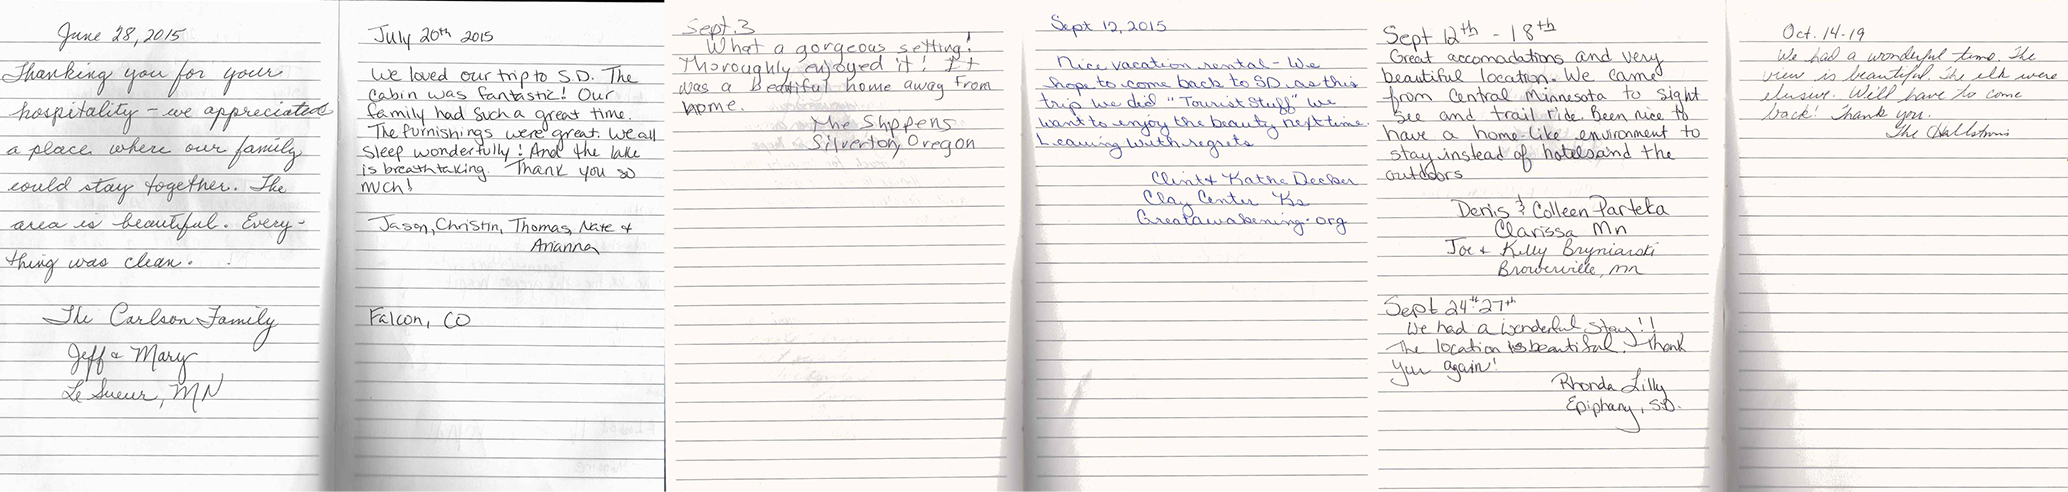 June 28, 2015
Thanking you for your
hospitality - we appreciated
a place where our family
could stay together. The
area is beautiful. Every-
thing was clean.
The Carlson Family
Jeff & Mary
Le Sueur, MN
July 20th 2015
We loved our trip to S.D. The
cabin was fantastic! Our
family had such a great time.
The furnishings were great. We all
sleep wonderfully! And the lake
is breathtaking. Thank you so
much!
Jason, Christin, Thomas, Nate &
Arianna
Falcon, CO
Sept. 3
What a gorgeous setting!
Thoroughly enjoyed it! It
was a beautiful home away from
home.
The Sippens
Silverton, Oregon
Sept 12, 2015
Nice vacation rental - We
hope to come back to SD as this
trip we did "Tourist Stuff" we
want to enjoy the beauty next time.
Leaving with regrets
Clint & Kathe Decker
Clay Center Ks
Greatawakening.org
Sept 12th - 18th
Great accomodations and very
beautiful location. We came
from Central Minnesota to sight
see and trail ride. Been nice to
have a home-like environment to
stay instead of hotels and the
outdoors
Denis & Colleen Parteka
Clarissa Mn
Joe & Kelly Bryniarski
Browerville, mn
Sept 24th 27th
We had a wonderful stay!!
The location is beautiful. Thank
you again!
Rhonda Lilly
Epiphany, S.D.
Oct. 14-19
We had a wonderful time. The
view is beautiful. The elk were
elusive. Will have to come
back! Thank you.
The Hallstroms